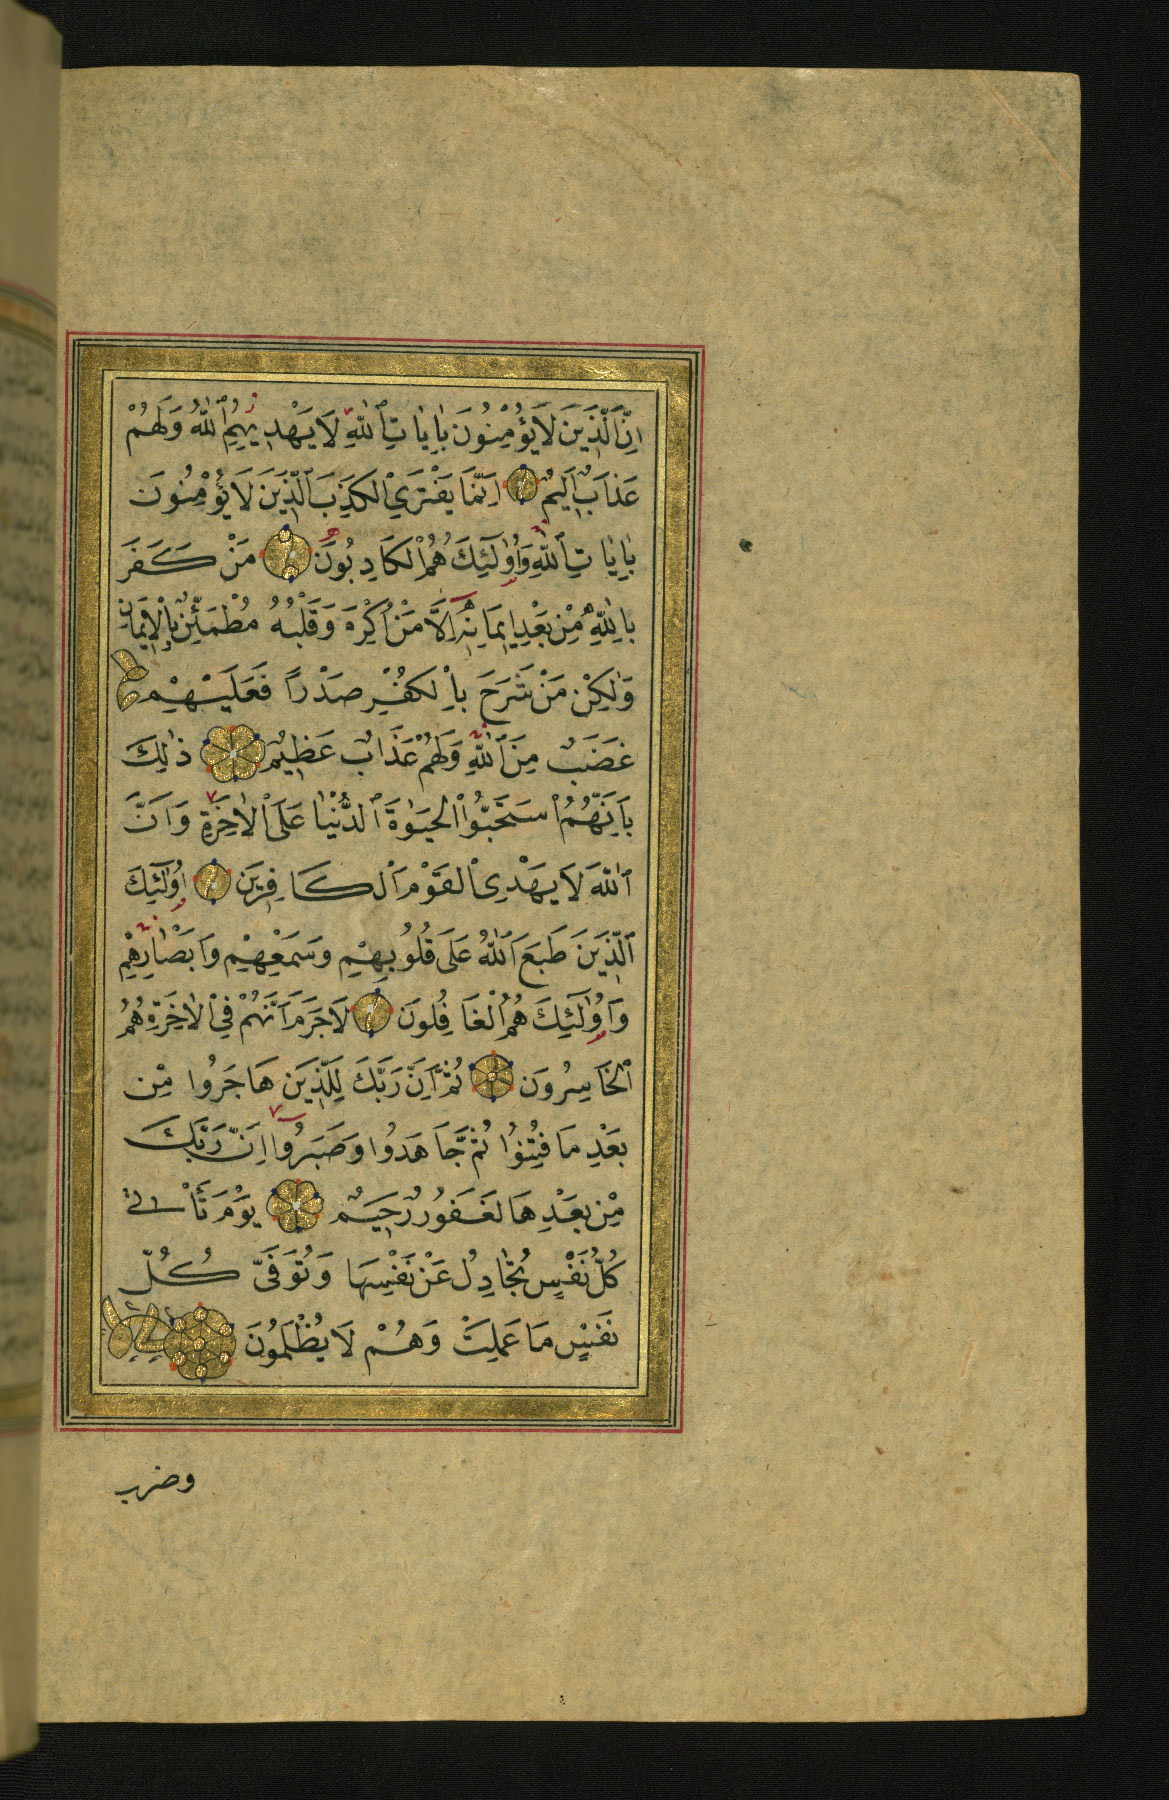 اِنَّ الَّذِينَ لَا يُؤْمِنُونَ بِاٰيَاتِ اللّٰهِ لَا يَهْدِيهِمُ اللّٰهُ وَلَهُمْ
عَذَابٌ اَلِيمٌ اِنَّمَا يَفْتَرِي الْكَذِبَ الَّذِينَ لَا يُؤْمِنُونَ
بِاٰيَاتِ اللّٰهِ وَاُولٰٓئِكَ هُمُ الْكَاذِبُونَ مَنْ كَفَرَ
بِاللّٰهِ مِنْ بَعْدِ اِيمَانِهِ اِلَّا مَنْ اُكْرِهَ وَقَلْبُهُ مُطْمَئِنٌّ بِالْاِيمَانِ
وَلٰكِنْ مَنْ شَرَحَ بِالْكُفْرِ صَدْرًا فَعَلَيْهِمْ
غَضَبٌ مِنَ اللّٰهِ وَلَهُمْ عَذَابٌ عَظِيمٌ ذٰلِكَ
بِاَنَّهُمُ اسْتَحَبُّوا الْحَيٰوةَ الدُّنْيَا عَلَى الْاٰخِرَةِ وَاَنَّ
اللّٰهَ لَا يَهْدِي الْقَوْمَ الْكَافِرِينَ اُولٰٓئِكَ
الَّذِينَ طَبَعَ اللّٰهُ عَلٰى قُلُوبِهِمْ وَسَمْعِهِمْ وَاَبْصَارِهِمْ
وَاُولٰٓئِكَ هُمُ الْغَافِلُونَ لَا جَرَمَ اَنَّهُمْ فِي الْاٰخِرَةِ هُمُ
الْخَاسِرُونَ ثُمَّ اِنَّ رَبَّكَ لِلَّذِينَ هَاجَرُوا مِنْ
بَعْدِ مَا فُتِنُوا ثُمَّ جَاهَدُوا وَصَبَرُوا اِنَّ رَبَّكَ
مِنْ بَعْدِهَا لَغَفُورٌ رَحِيمٌ يَوْمَ تَأْتِي
كُلُّ نَفْسٍ تُجَادِلُ عَنْ نَفْسِهَا وَتُوَفّٰى كُلُّ
نَفْسٍ مَا عَمِلَتْ وَهُمْ لَا يُظْلَمُونَ
وضرب